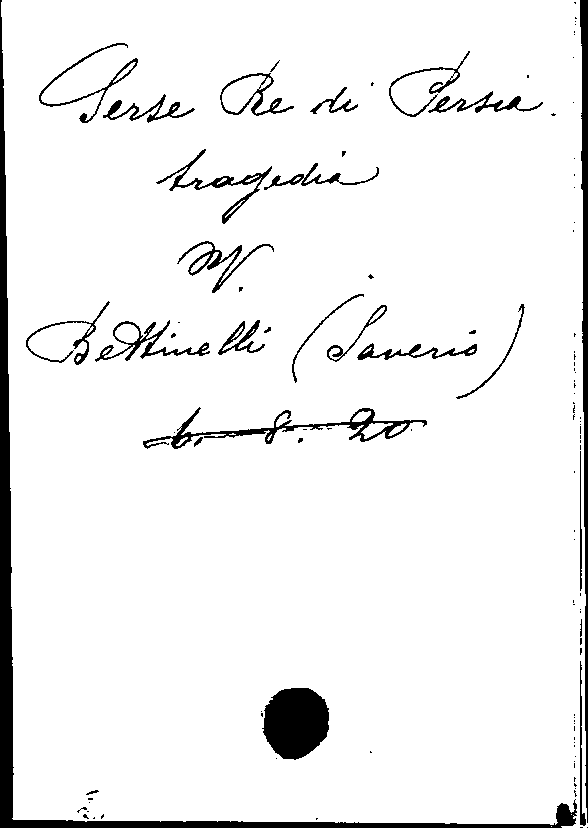 Serse Re di Persia.
tragedia
V.
Bettinelli (Saverio)
6. 8. 20